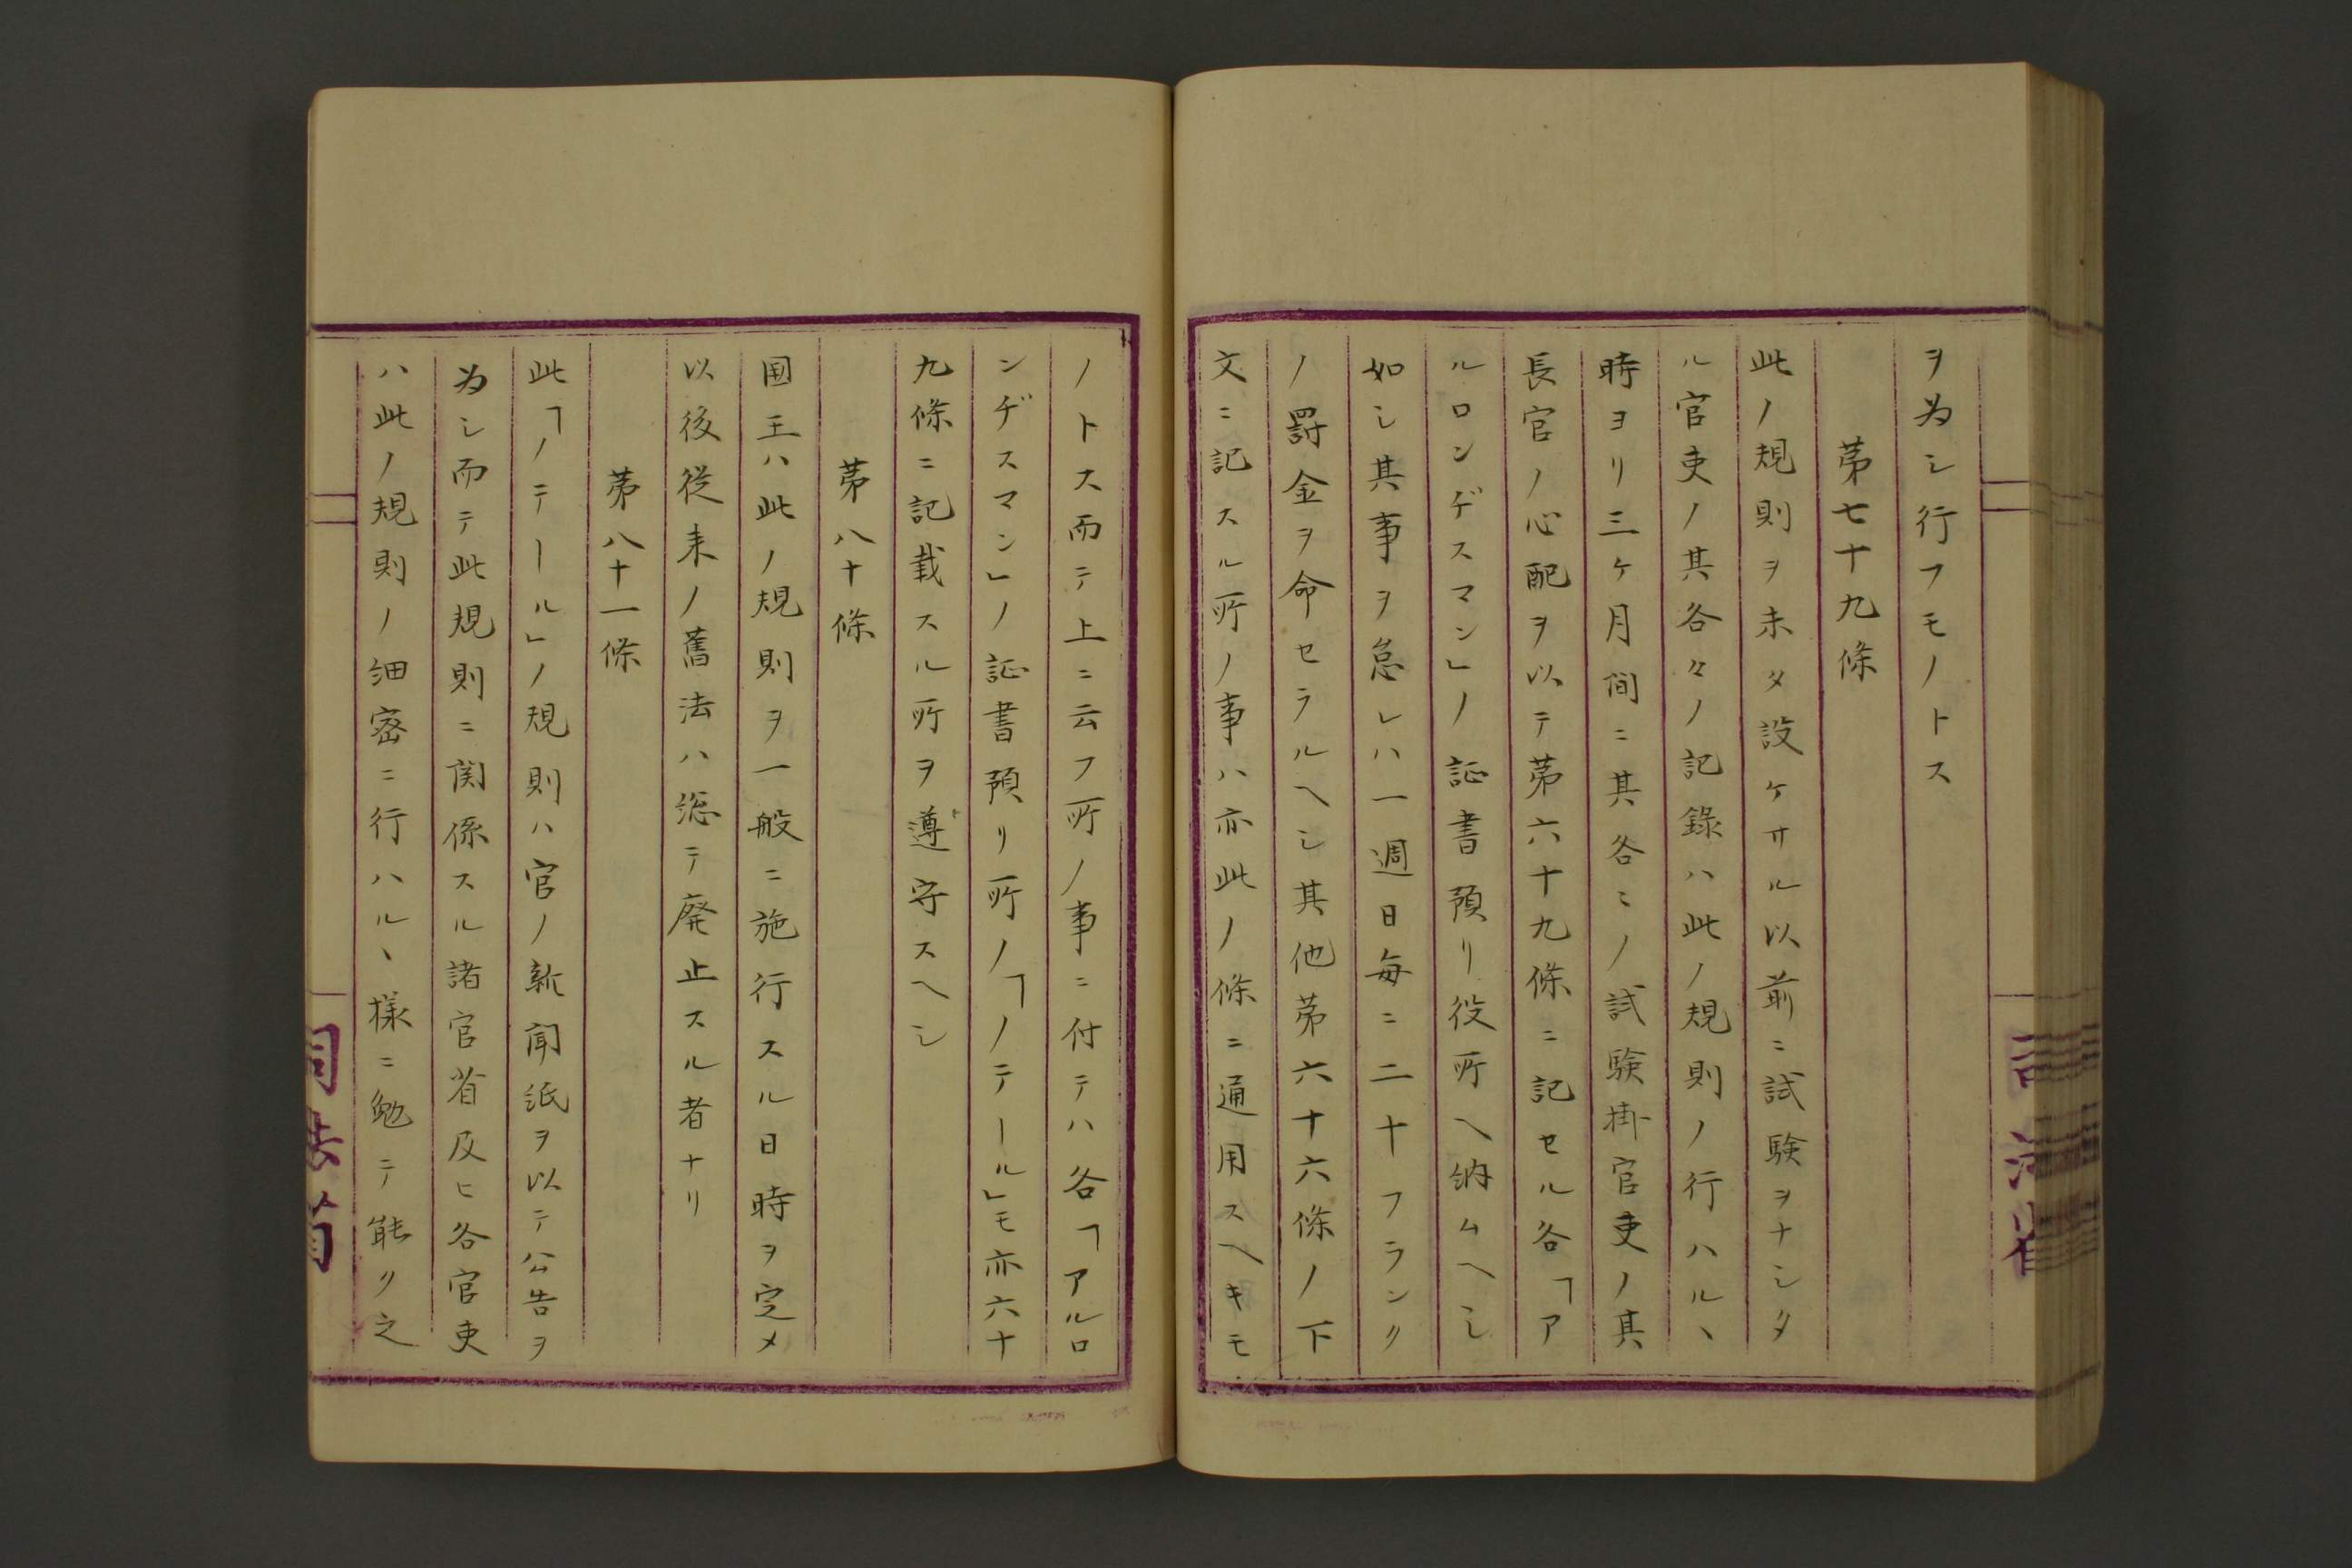 ヲ為シ行フモノトス
第七十九條
此ノ規則ヲ未タ設ケサル以前ニ試験ヲナシタ
ル官吏ノ其各々ノ記録ハ此ノ規則ノ行ハルヽ
時ヨリ三ケ月間ニ其各々ノ試験掛官吏ノ其
長官ノ心配ヲ以テ第六十九條ニ記セル各「ア
ルロンヂスマン」ノ証書預リ役所ヘ納ムヘシ
如シ其事ヲ怠レハ一週日毎ニ二十フランク
ノ罰金ヲ命セラルヘシ其他第六十六條ノ下
文ニ記スル所ノ事ハ亦此ノ條ニ通用スヘキモ
ノトス而テ上ニ云フ所ノ事ニ付テハ各「アルロ
ンヂスマン」ノ証書預リ所ノ「ノテール」モ亦六十
九條ニ記載スル所ヲ遵守スヘシ
第八十條
国王ハ此ノ規則ヲ一般ニ施行スル日時ヲ定メ
以後従来ノ舊法ハ総テ廃止スル者ナリ
第八十一條
此「ノテール」ノ規則ハ官ノ新聞紙ヲ以テ公告ヲ
為シ而テ此規則ニ関係スル諸官省及ヒ各官吏
ハ此ノ規則ノ細密ニ行ハルヽ様ニ勉テ能ク之
司法省